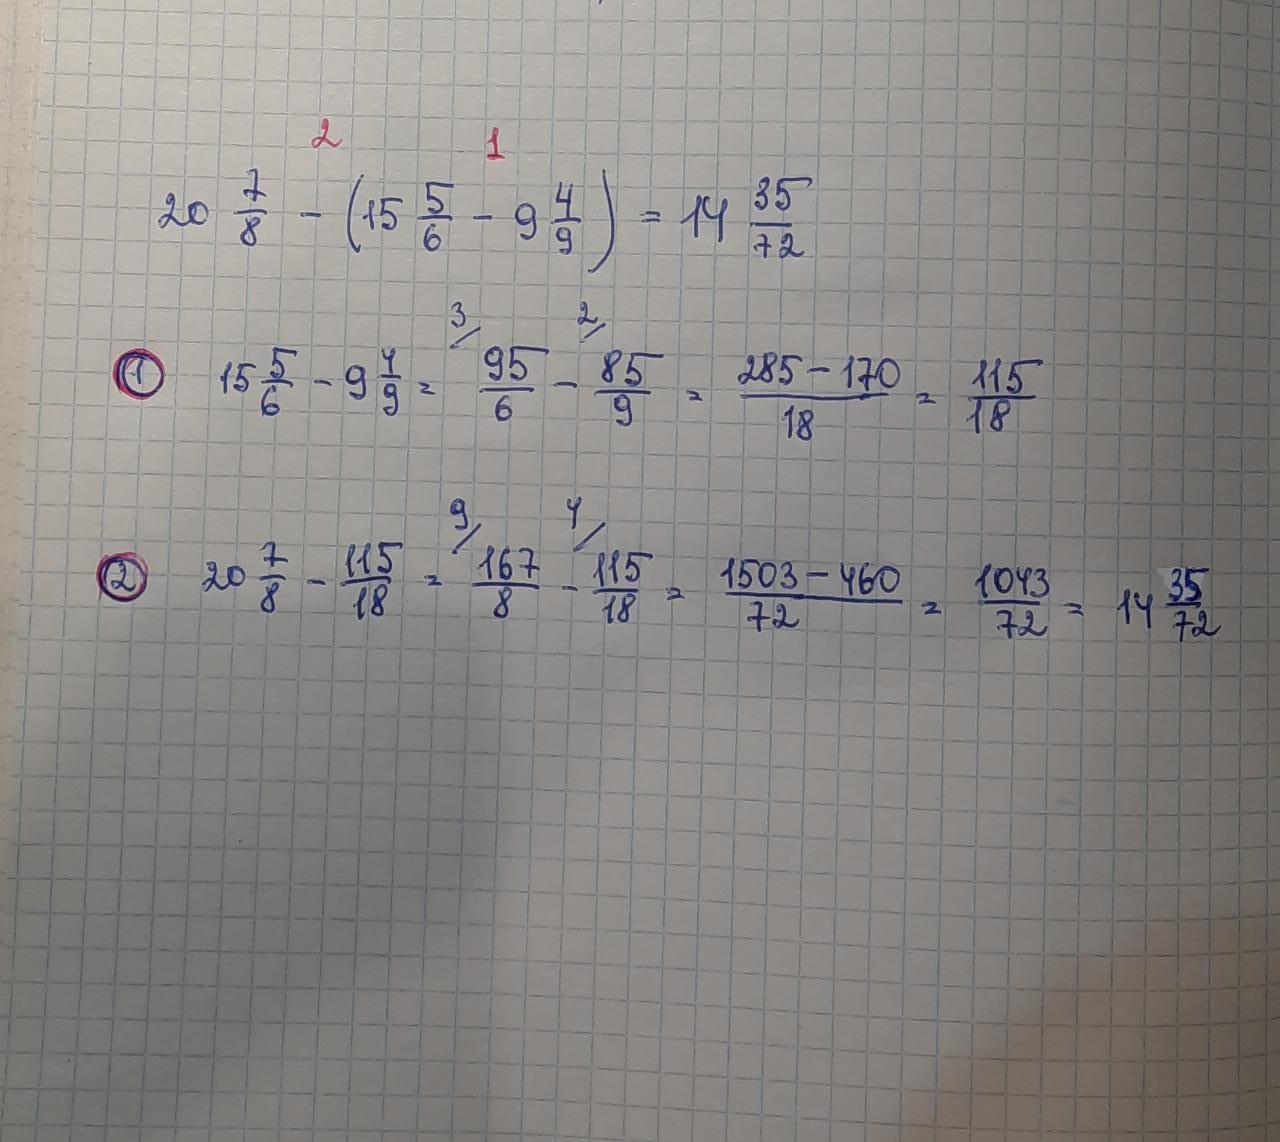 2 1
20 7/8 - (15 5/6 - 9 4/9) = 14 35/72
3/ 2/
① 15 5/6 - 9 4/9 = 95/6 - 85/9 = 285-170/18 = 115/18
9/ 4/
② 20 7/8 - 115/18 = 167/8 - 115/18 = 1503-460/72 = 1043/72 = 14 35/72